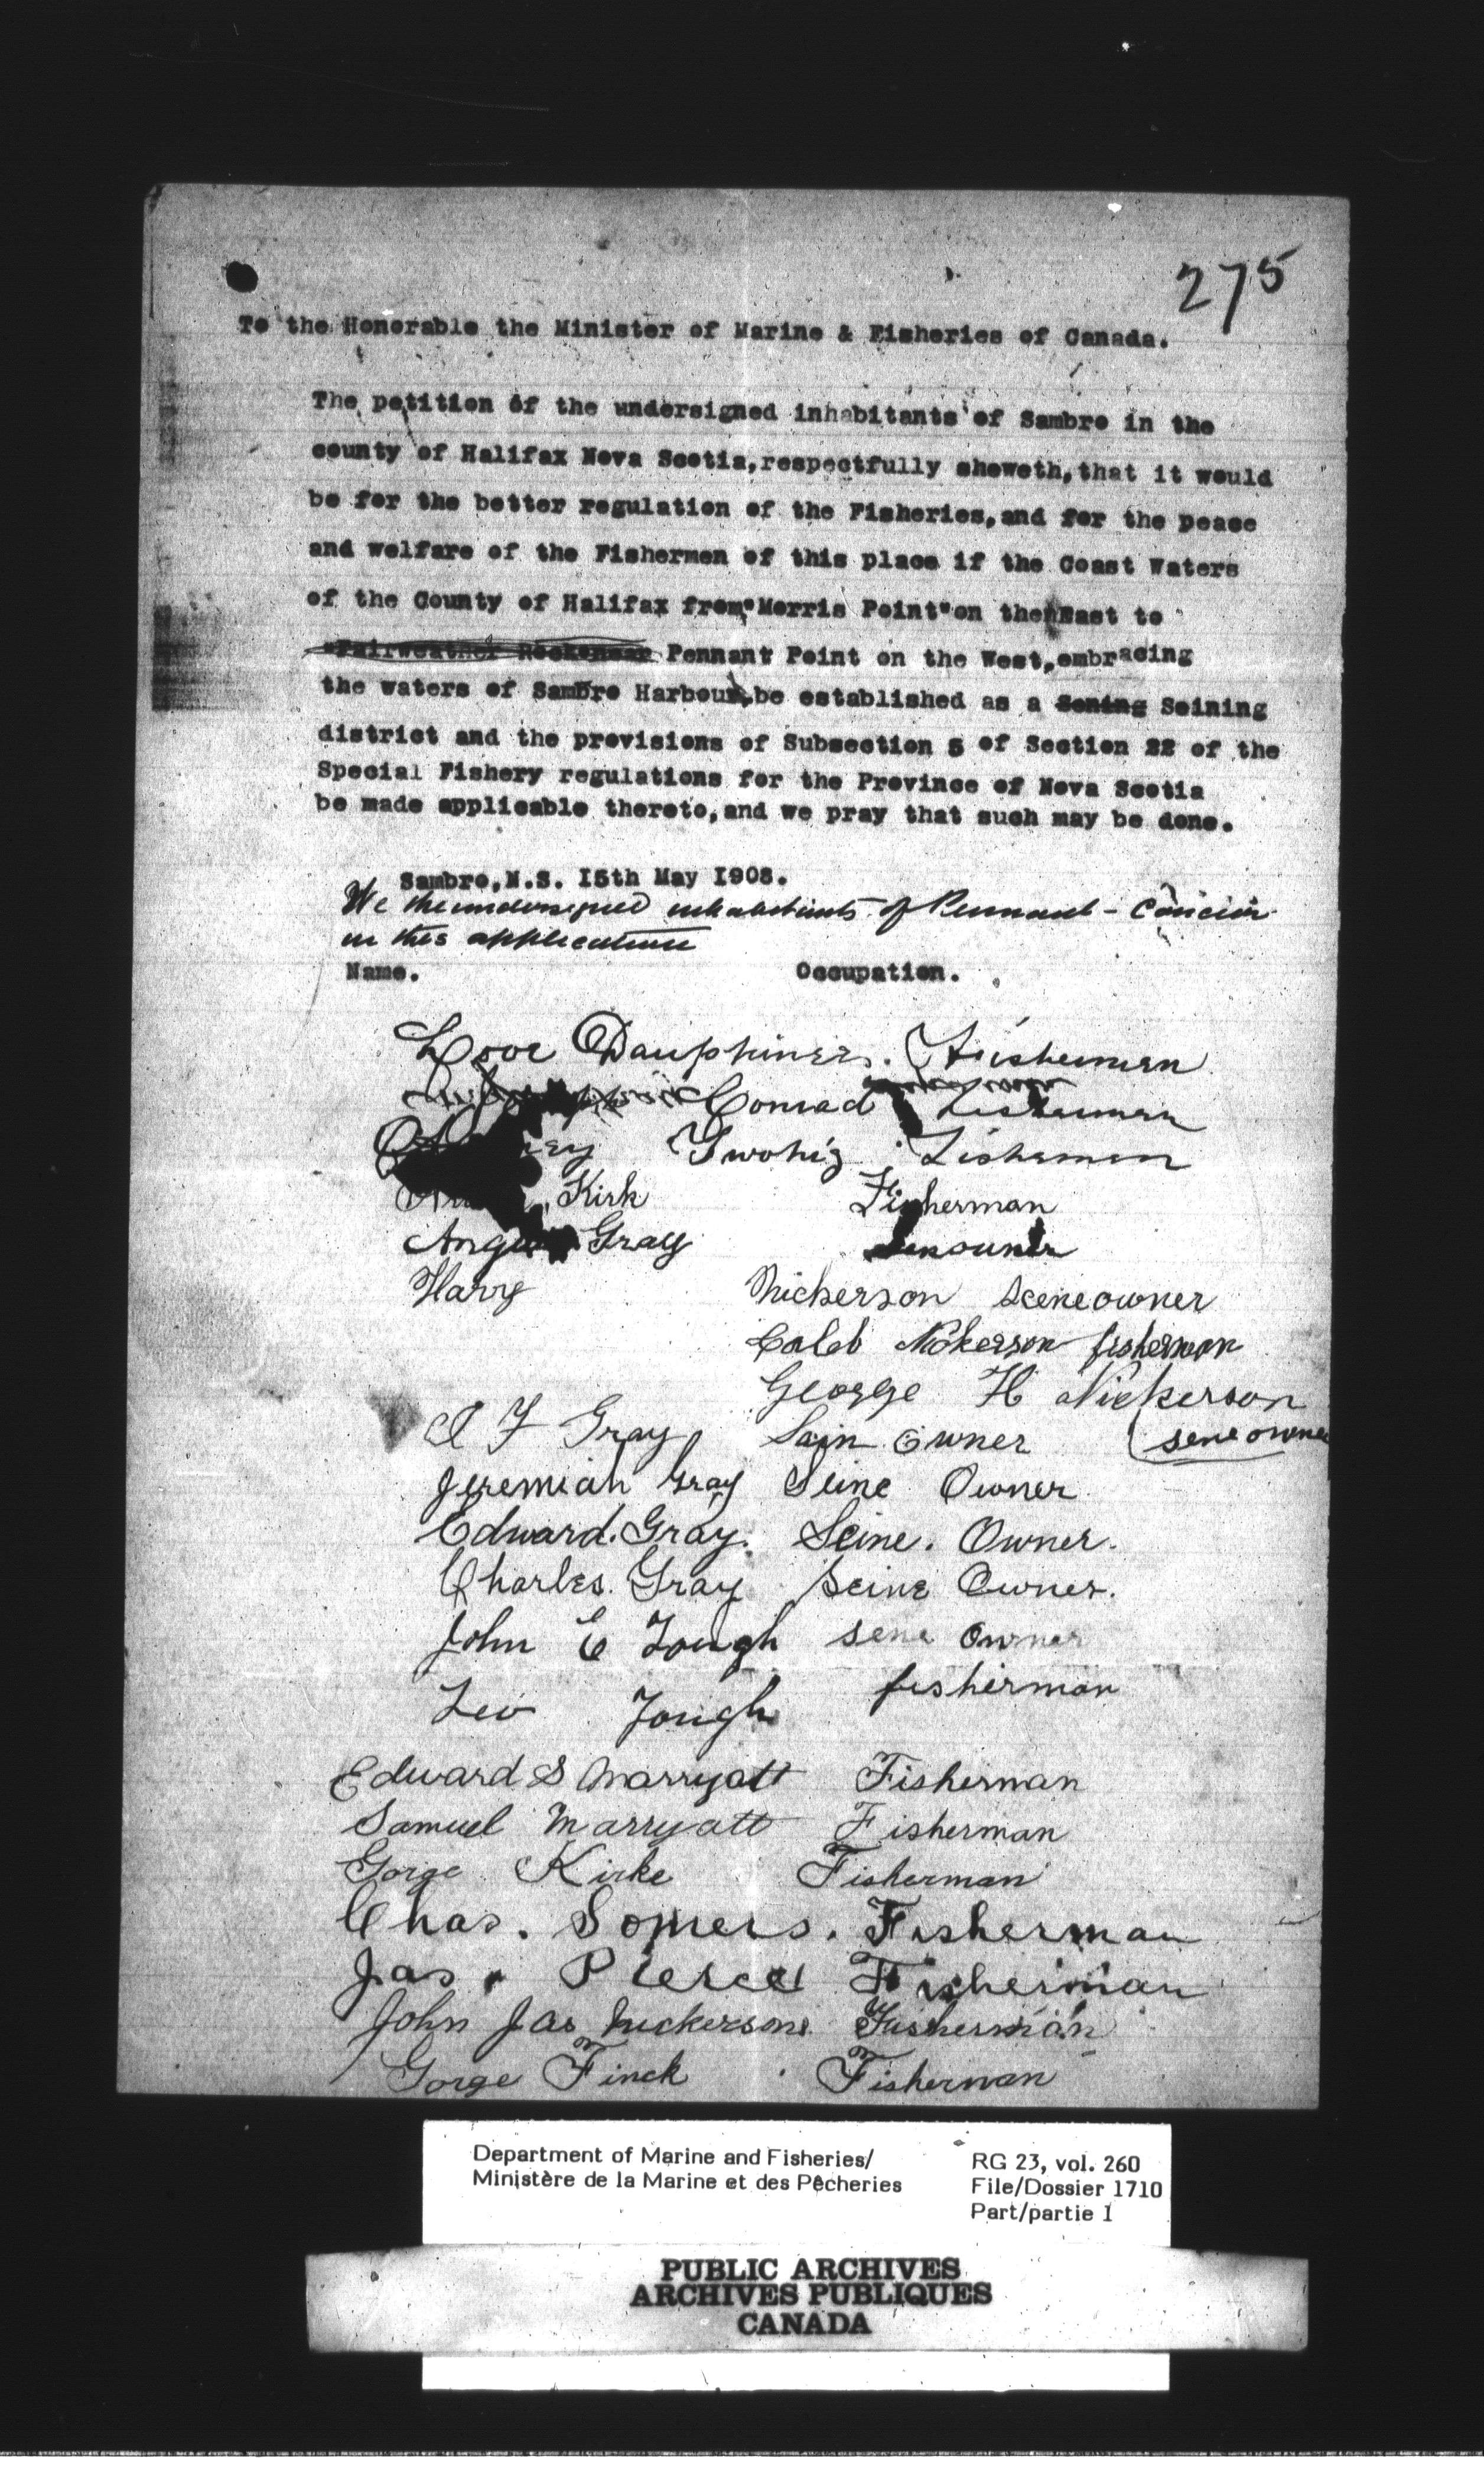 275
To the Honorable the Minister of Marine & Fisheries of Canada.
The petition of the undersigned inhabitants of Sambro in the
county of Halifax Nova Scotia,respectfully sheweth,that it would
be for the better regulation of the Fisheries,and for the peace
and welfare of the Fishermen of this place if the Coast Waters
of the County of Halifax from"Morris Point"on the East to
"Fairweather Pennant Point on the West,embracing
the waters of Sambro Harbour,be established as a Sening Seining
district and the provisions of Subsection 5 of Section 22 of the
Special Fishery regulations for the Province of Nova Scotia
be made applicable thereto,and we pray that such may be done.
Sambro,N.S. I5th May I908.
We the undersigned inhabitants of Pennant - Concur
in this application
Name. Occupation.
Dauphinee. Fisherman
Conrad Fisherman
Twohig Fisherman
Kirk Fisherman
Angus Gray
Harry Nickerson Sceneowner
Caleb Nickerson fisherman
George H Nickerson
Gray Sain Owner sene owner
Jeremiah Gray Seine Owner
Edward. Gray. Seine. Owner.
Charles. Gray Seine Owner.
John E Tough sene owner
Leo Tough fisherman
Edward S Marryatt Fisherman
Samuel Marryatt Fisherman
Gorge Kirke Fisherman
Chas. Somers. Fisherman
Jas. Pierce Fisherman
John Jas Nickerson Fisherman
Gorge Finck Fisherman
Department of Marine and Fisheries/
Ministère de la Marine et des Pêcheries
RG 23, vol. 260
File/Dossier 1710
Part/partie 1
PUBLIC ARCHIVES
ARCHIVES PUBLIQUES
CANADA